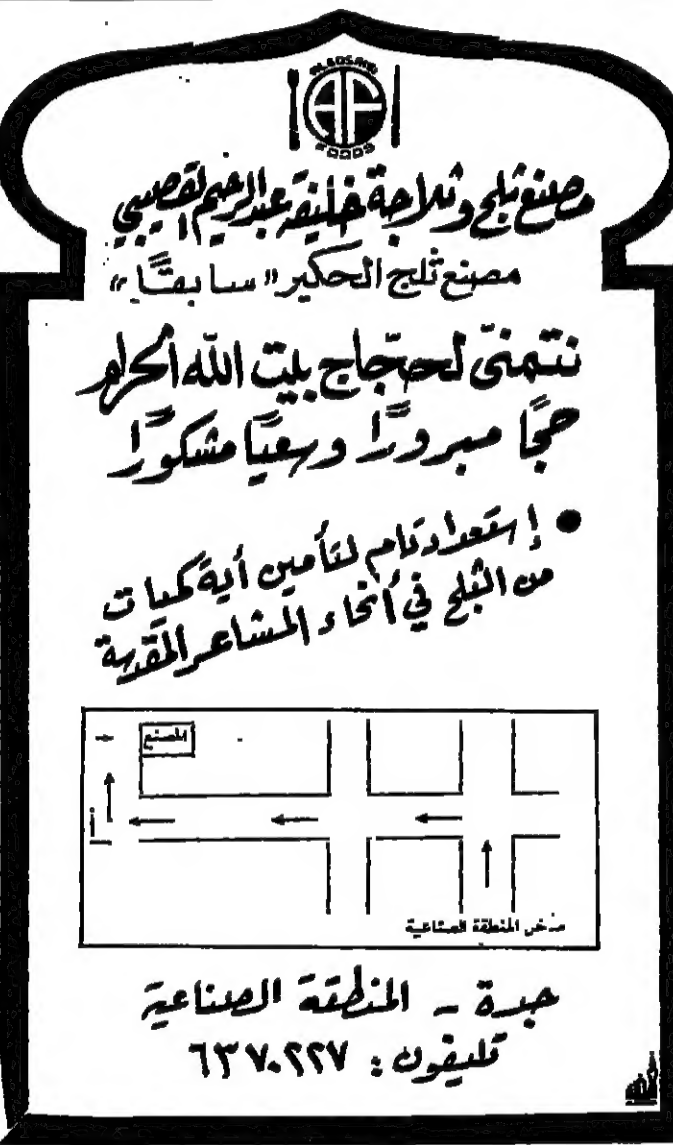 ALGOSAIBI
AF
FOODS
مصنع ثلج وثلاجة خليفة عبدالرحيم القصيبي
مصنع ثلج الحكير "سابقًا"
نتمنى لحجّاج بيت الله الحرام
حجًا مبرورًا وسعيًا مشكورًا
• إستعداد تام لتأمين أية كميات
من الثلج في أنحاء المشاعر المقدسة
المصنع
مدخل المنطقة الصناعية
جدة - المنطقة الصناعية
تليفون : ٦٣٧٠٢٢٧